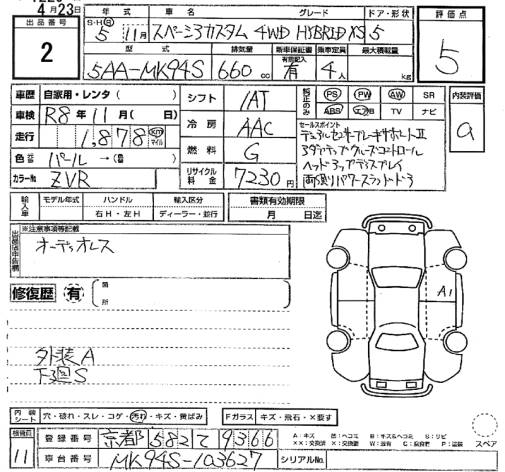 4月23日
出品番号
2
年式 車名 グレード ドア・形状
S・H・R 5年 11月 スペーシアカスタム 4WD HYBRID XS 5
評価点
5
型式 排気量 新車保証書 乗車定員 最大積載量
5AA-MK94S 660 cc 有 4人 kg
車歴 自家用・レンタ( )
シフト IAT
車検 R8年11月( 日)
冷房 AAC
走行 1,878 km マイル
燃料 G
色替 パール→(色)
リサイクル料金 7230円
カラーNo ZVR
純正のみ PS PW AW SR
ABS エアB TV ナビ
内装評価
a
セールスポイント
デュアルセンサーブレーキサポートⅡ
アダプティブクルーズコントロール
ヘッドアップディスプレイ
両側パワースライドドア
輸入車 モデル年式 ハンドル 輸入区分 書類有効期限
右H・左H ディーラー・並行 月 日迄
出品店申告欄
※注意事項等記載
オーディオレス
修復歴 有 箇所
A1
外装A
下廻S
内装シート 穴・破れ・スレ・コゲ・汚れ・キズ・黄ばみ Fガラス キズ・飛石・X要す
検査員 11
登録番号 京都 582 て 9366
車台番号 MK94S-103627 シリアルNo.
A:キズ B:キズ&ヘコミ S:サビ
スペア